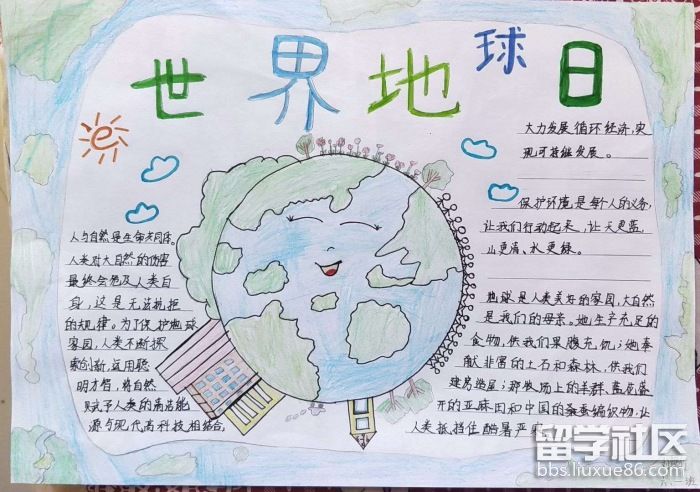 世界地球日
大力发展循环经济,实
现可持继发展。
保护环境,是每个人的义务,
让我们行动起来,让天更蓝,
山更清、水更绿。
人与自然是生命共同体。
人类对大自然的伤害
最终会危及人类自
身,这是无法抗拒
的规律。为了保护地球
家园,人类不断探
索创新,运用聪
明才智,将自然
赋予人类的清洁能
源与现代高科技相结合,
地球是人类美好的家园,大自然
是我们的母亲。她生产充足的
食物,供我们果腹充饥;她奉
献非常的土石和森林,供我们
建房造屋;那牧场上的羊群、蓝花盛
开的亚麻田和中国的桑蚕编织物,让
人类抵挡住酷暑严
留学社区
bbs.liuxue86.com